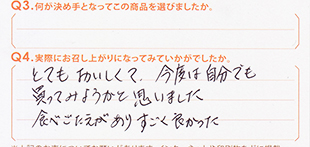 Q3.何が決め手となってこの商品を選びましたか。
Q4.実際にお召し上がりになってみていかがでしたか。
とても おいしくて、今度は自分でも
買ってみようかと思いました
食べごたえがあり すごく良かった